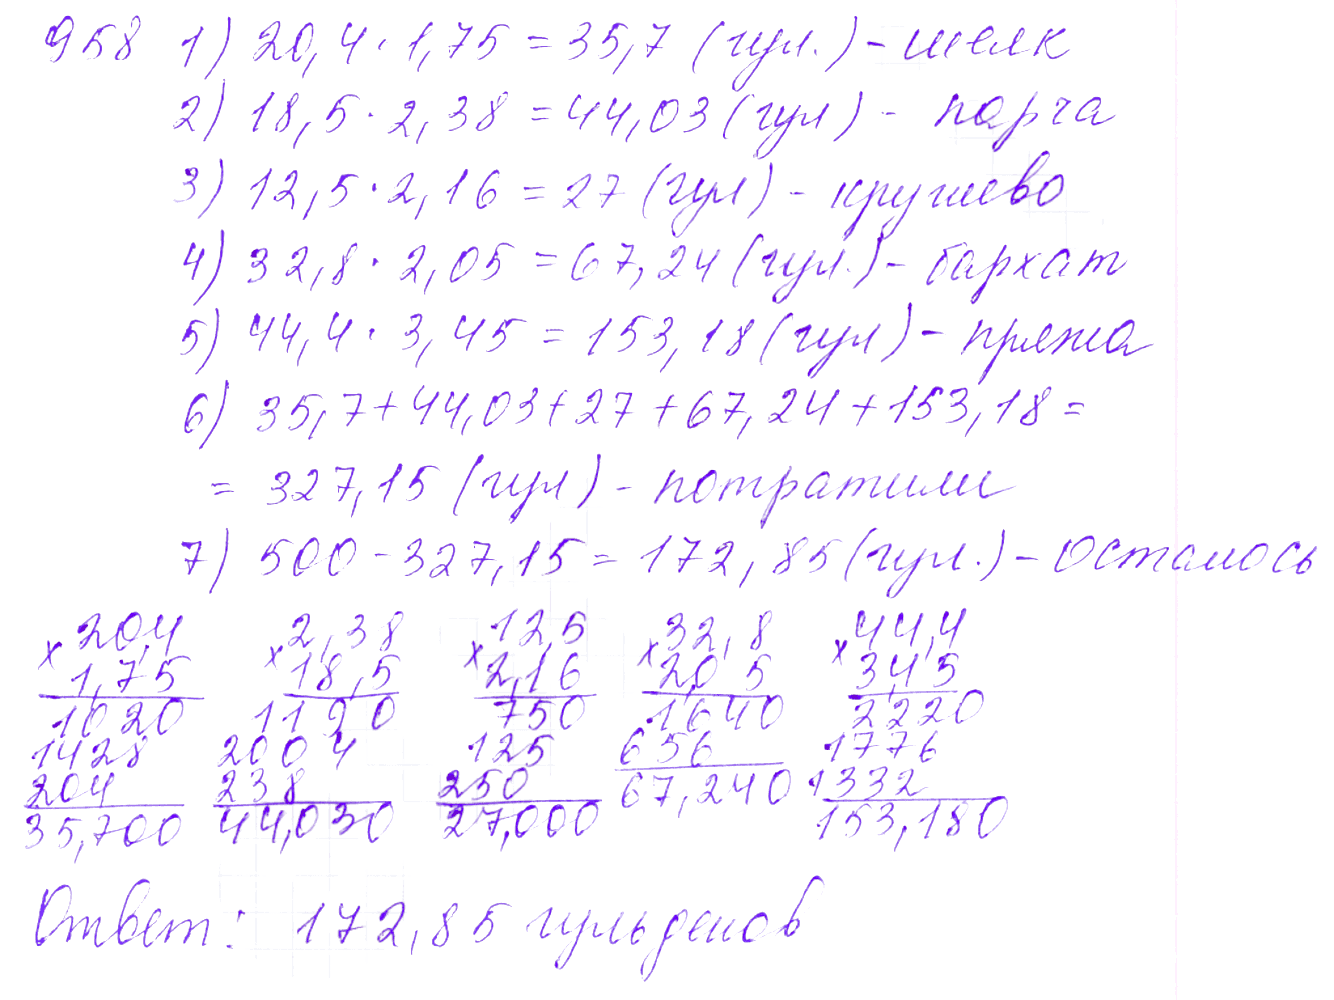 958 1) 20,4 · 1,75 = 35,7 (гул.) - шелк
2) 18,5 · 2,38 = 44,03 (гул) - парча
3) 12,5 · 2,16 = 27 (гул) - кружево
4) 32,8 · 2,05 = 67,24 (гул.) - бархат
5) 44,4 · 3,45 = 153,18 (гул) - пряжа
6) 35,7 + 44,03 + 27 + 67,24 + 153,18 =
= 327,15 (гул) - потратили
7) 500 - 327,15 = 172,85 (гул.) - осталось
× 20,4 × 2,38 × 12,5 × 32,8 × 44,4
1,75 18,5 2,16 2,05 3,45
1020 1190 750 1640 2220
1428 2004 125 656 1776
204 238 250 67,240 1332
35,700 44,030 27,000 153,180
Ответ: 172,85 гульденов